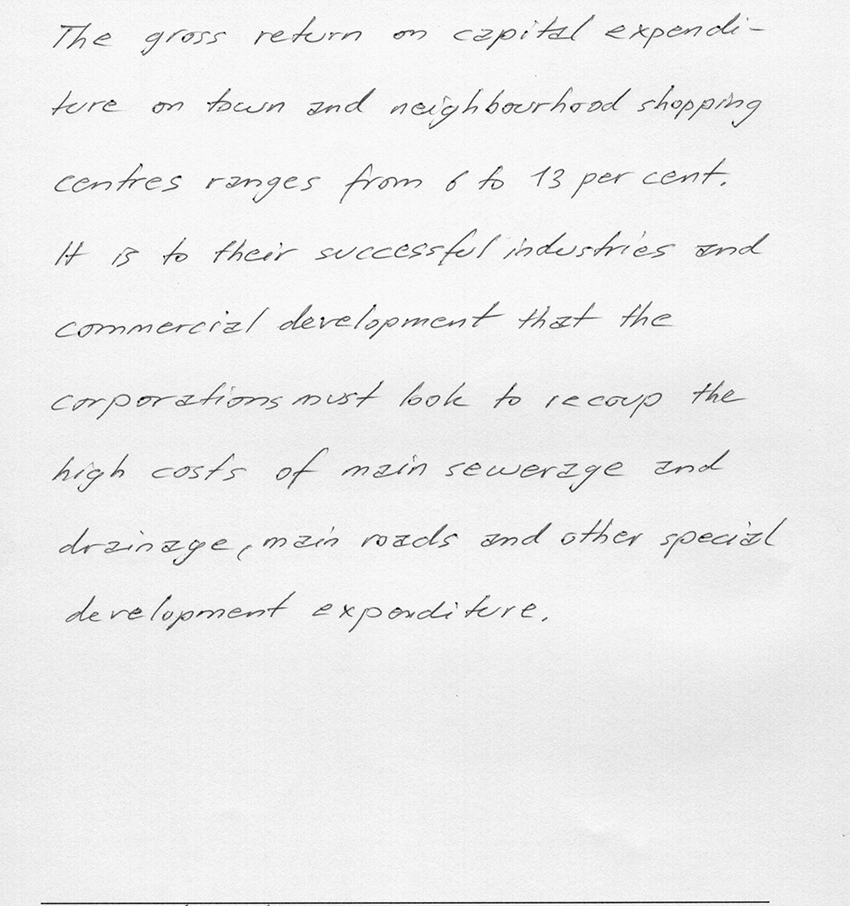 The gross return on capital expendi-
ture on town and neighbourhood shopping
centres ranges from 6 to 13 per cent.
It is to their successful industries and
commercial development that the
corporations must look to recoup the
high costs of main sewerage and
drainage, main roads and other special
development expenditure.